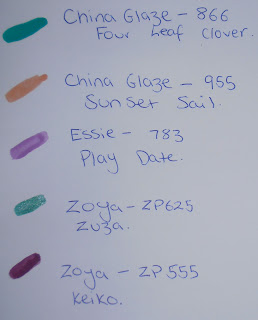 China Glaze - 866
Four Leaf Clover.
China Glaze - 955
Sunset Sail.
Essie - 783
Play Date.
Zoya - ZP625
Zuza.
Zoya - ZP555
Keiko.